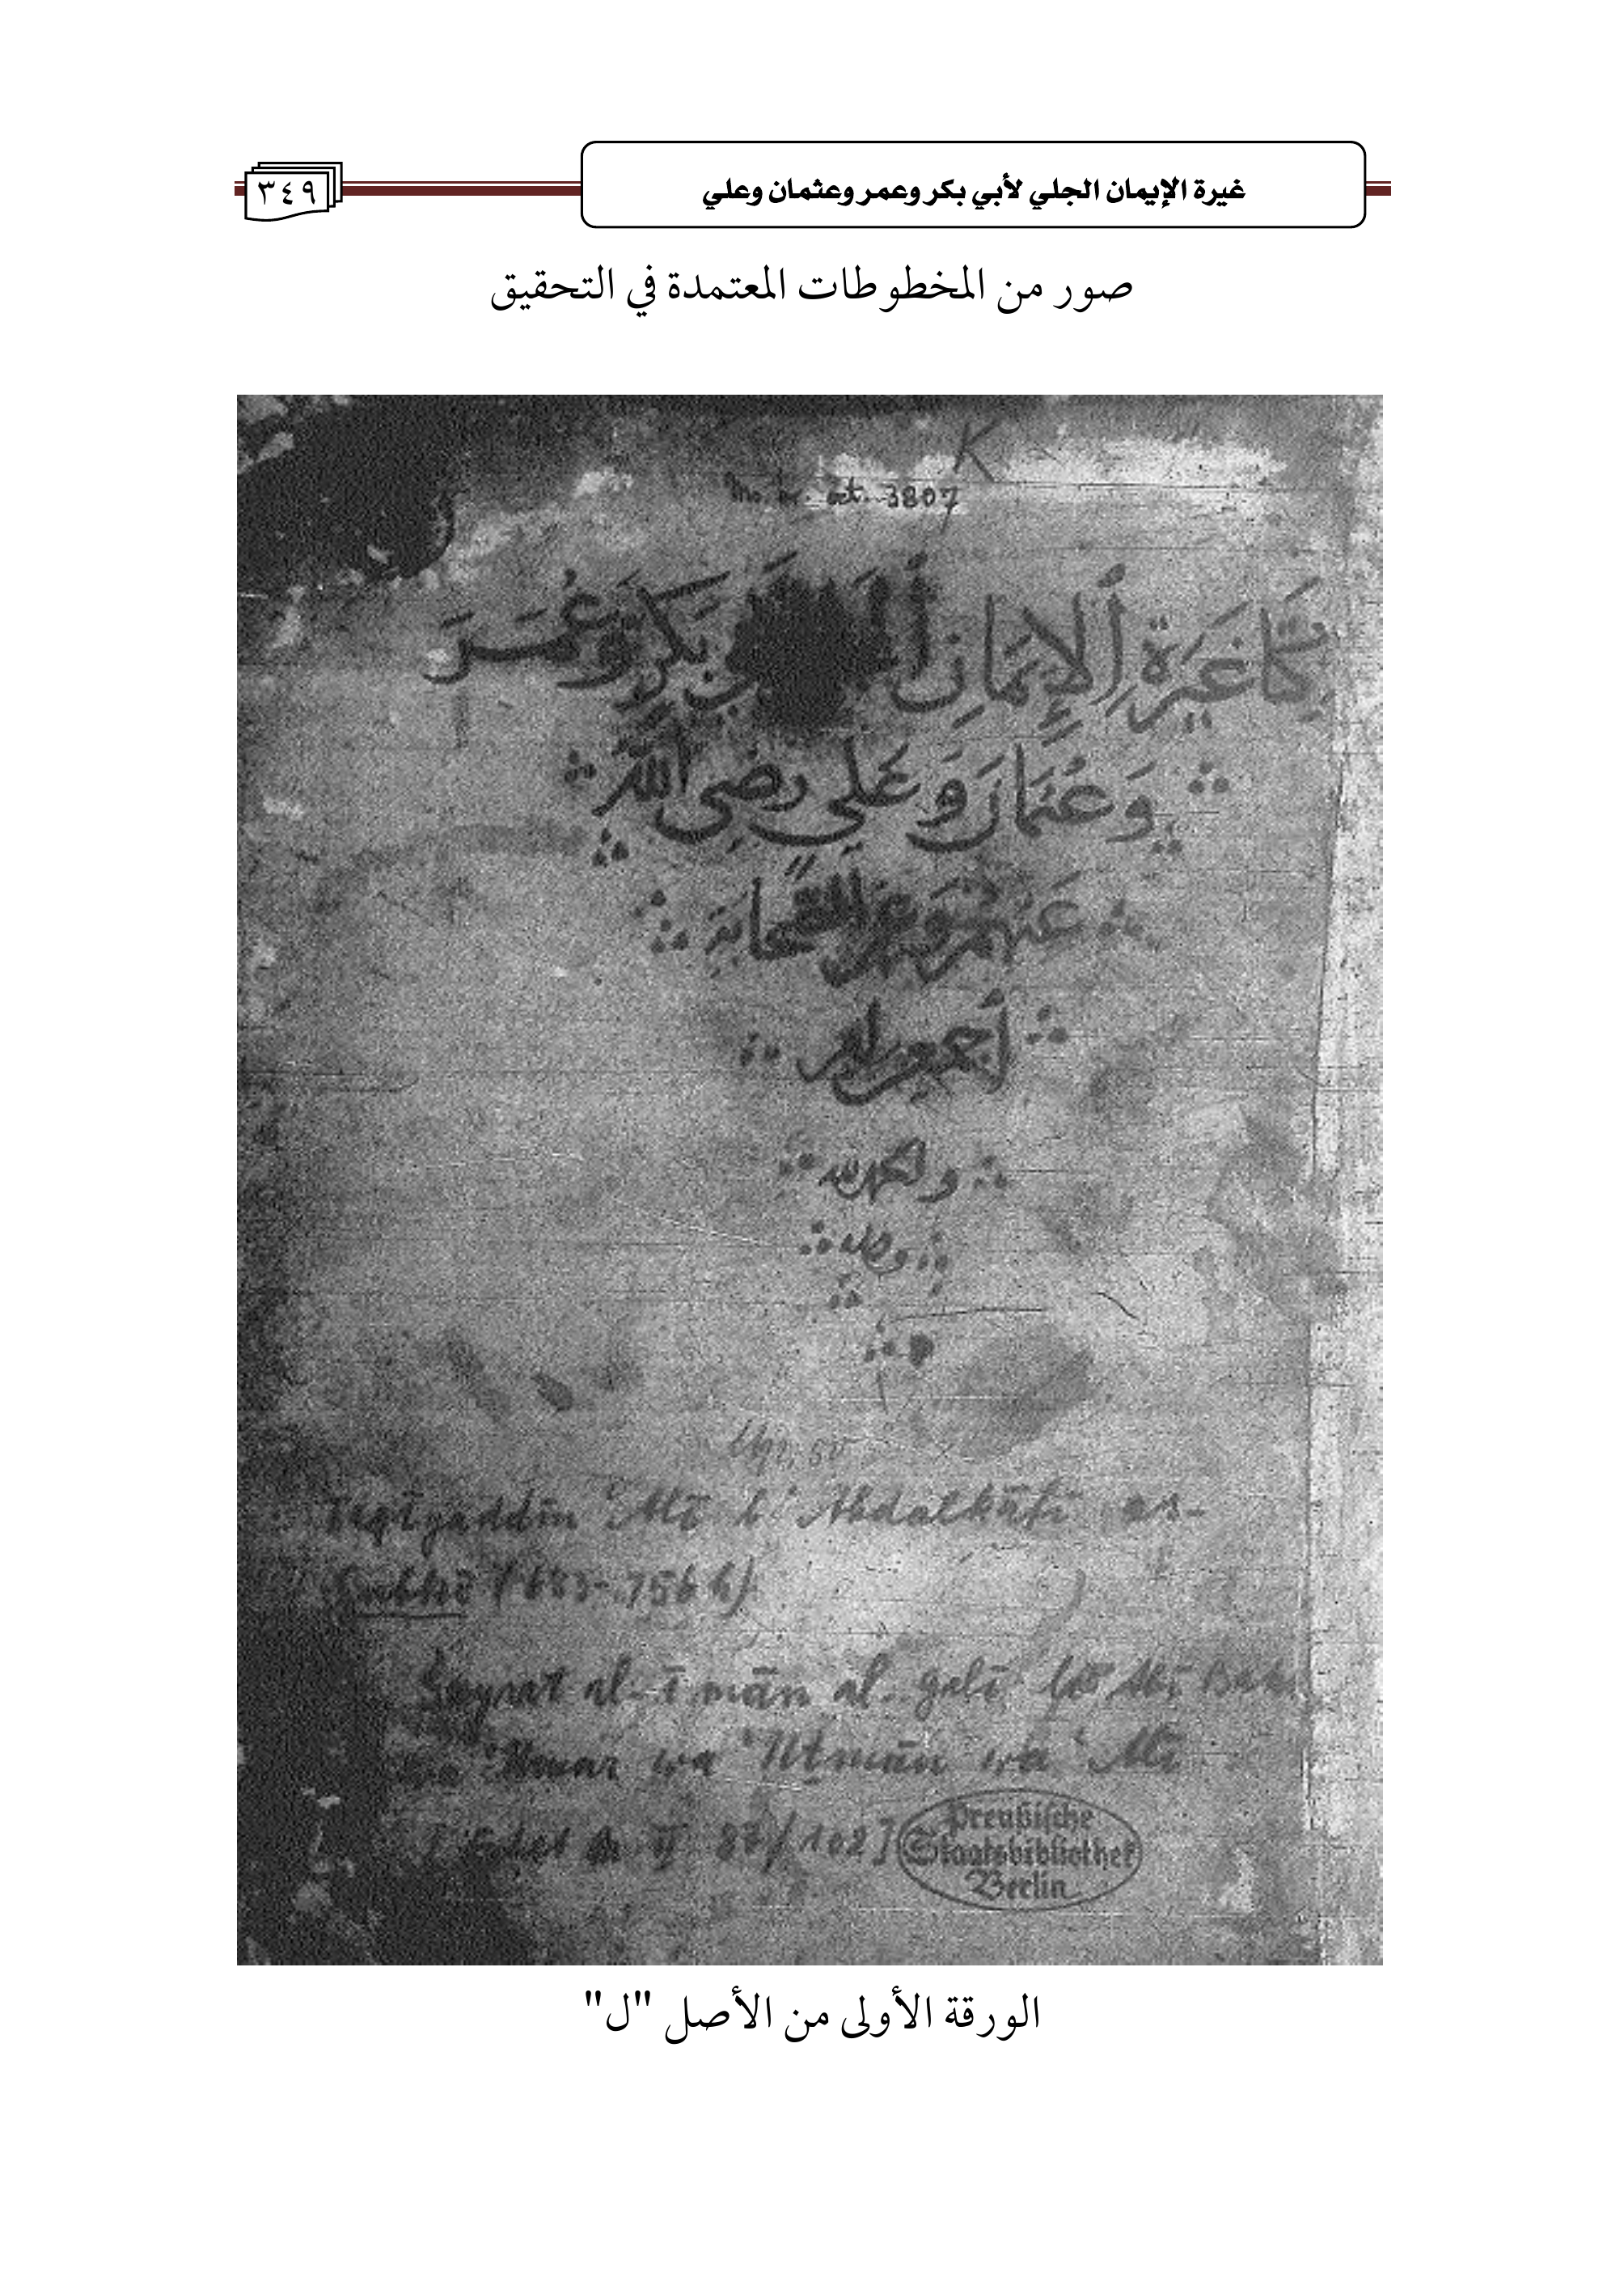 غيرة الإيمان الجلي لأبي بكر وعمر وعثمان وعلي
٣٤٩
صور من المخطوطات المعتمدة في التحقيق
K
Ms. or. oct. 3807
غَيرَة الإيمَانِ بَكرٍ وَعُمَرَ
وَعُثمَان وَعَلي رضي الله
عَنهُم وَعَن الصحابَةِ
أجمعين
والحمد لله
وحده
Taqīyaddīn ʿAlī b. ʿAbdalkāfī as-
Subkī (683-756 h)
Ġayrat al-īmān al-ǧelī
ʿOmar wa ʿUṯmān wa ʿAlī
II 87/102]
Preußische
Staatsbibliothek
Berlin
الورقة الأولى من الأصل "ل"